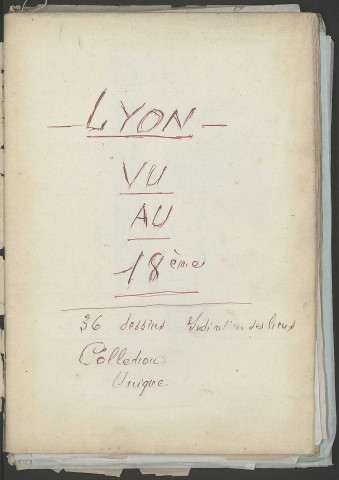 — LYON —
VU
AU
18ème
36 dessins Indication des lieux
Collection
Unique